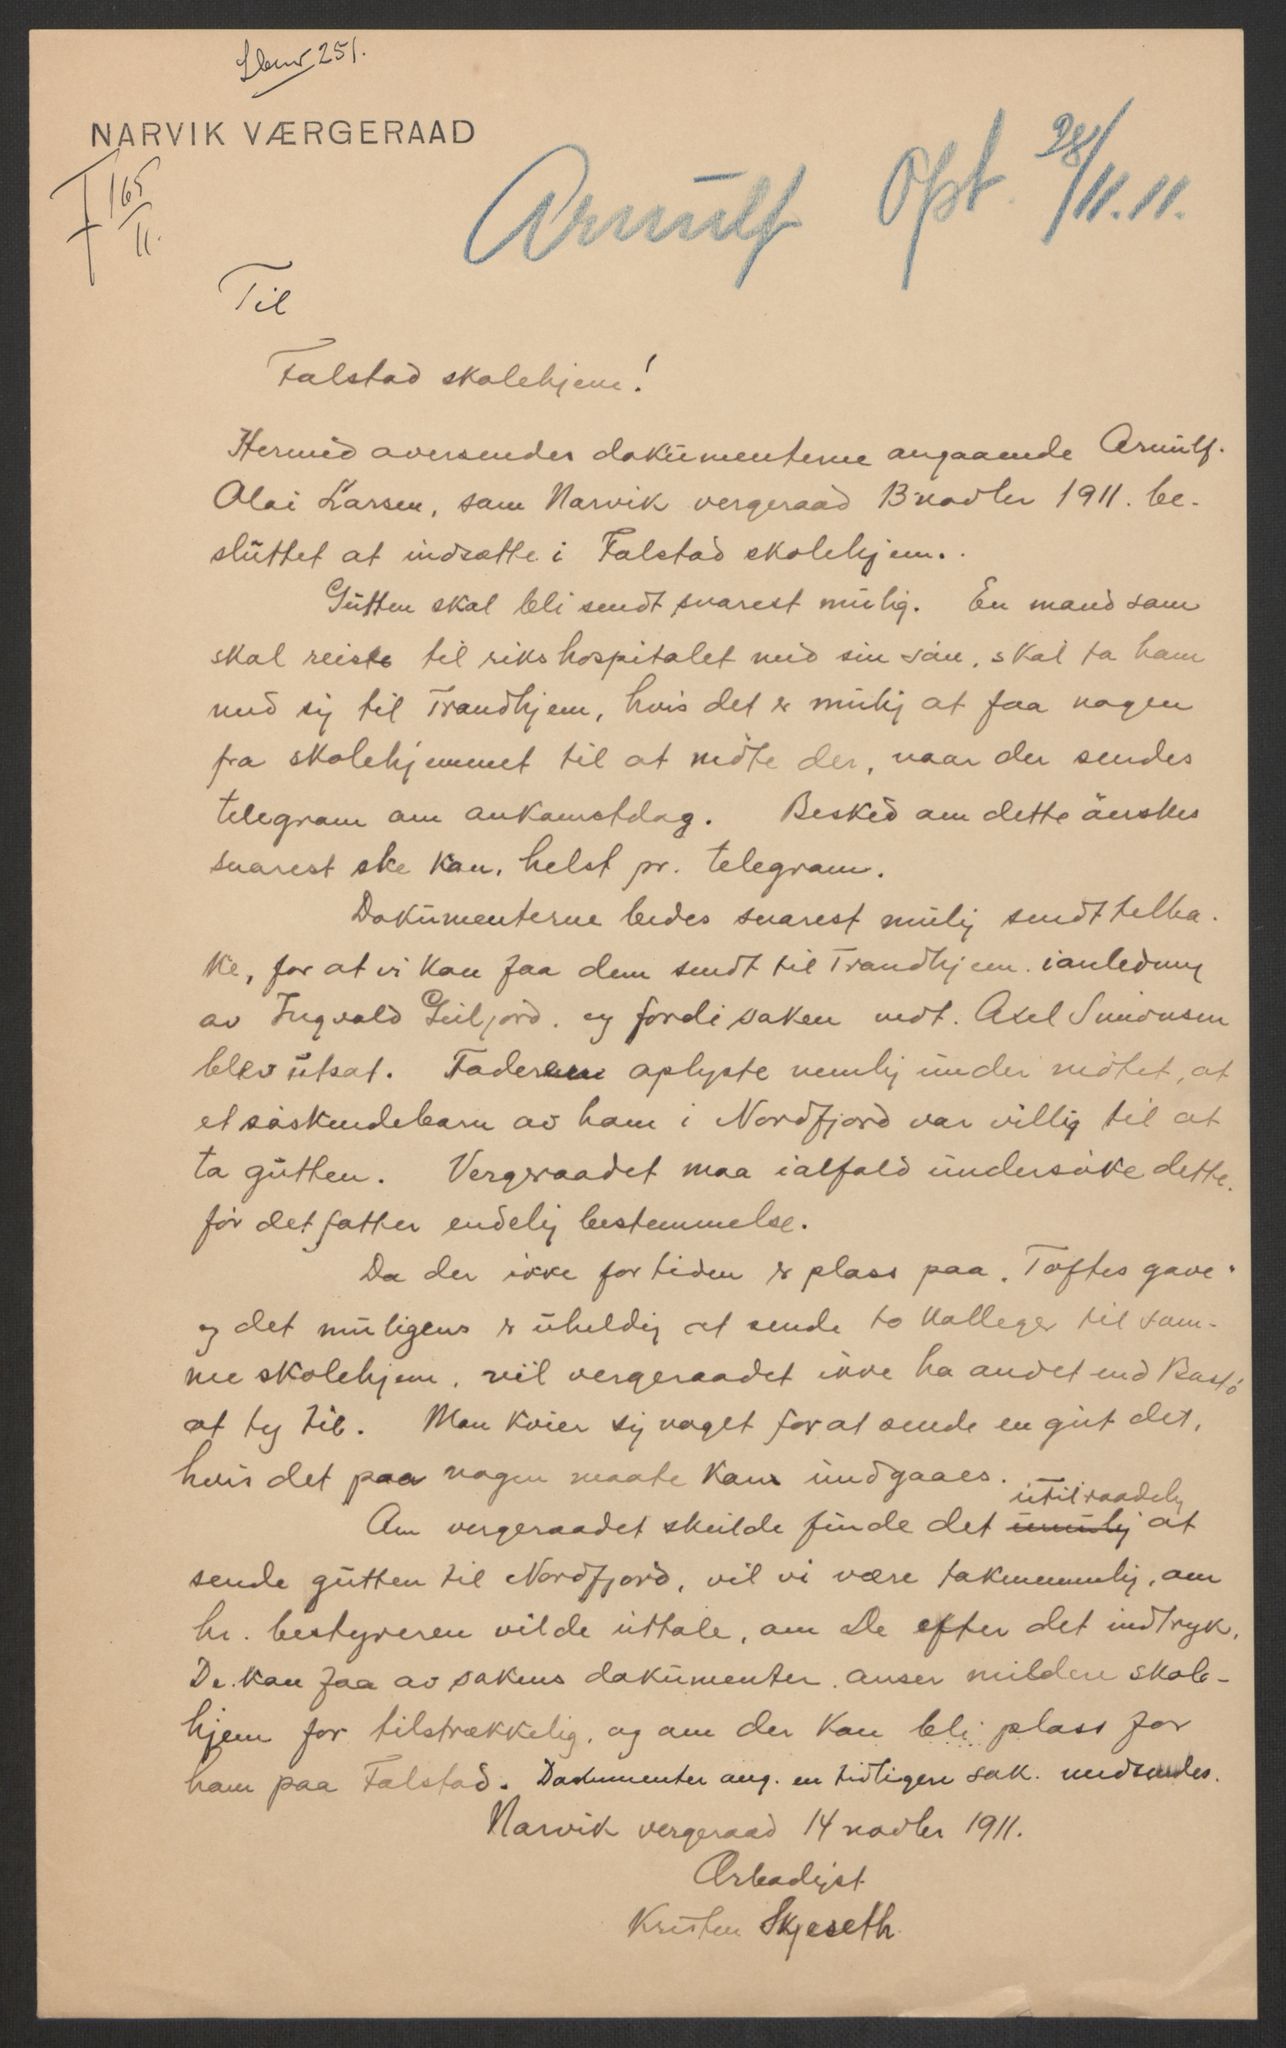 251.
NARVIK VÆRGERAAD
165
11.
Arnulf Opt. 28/11.11.
Til
Falstad skolehjem!
Hermed oversendes dokumenterne angaaende Arnulf
Olai Larsen, som Narvik vergeraad 13 novbr 1911. be-
sluttet at indsætte i Falstad skolehjem.
Gutten skal bli sendt snarest mulig. En mand som
skal reise til rikshospitalet med sin søn, skal ta ham
med sig til Trondhjem, hvis det er mulig at faa nogen
fra skolehjemmet til at møte der, naar der sendes
telegram om ankomstdag. Besked om dette ønskes
snarest ske kan, helst pr. telegram.
Dokumenterne bedes snarest mulig sendt tilba-
ke, for at vi kan faa dem sendt til Trondhjem i anledning
av Ingvald Geitjord, og fordi saken mot. Axel Simonsen
blev utsat. Faderen oplyste nemlig under møtet, at
et søskendebarn av ham i Nordfjord var villig til at
ta gutten. Vergeraadet maa ialfald undersøke dette,
før det fatter endelig bestemmelse.
Da der ikke for tiden er plass paa "Toftes gave"
og det muligens er uheldig at sende to kolleger til sam-
me skolehjem, vil vergeraadet ikke ha andet end Bastø
at ty til. Man kvier sig noget for at sende en gut dit,
hvis det paa nogen maate kan undgaaes.
utilraadelig
Om vergeraadet skulde finde det umulig at
sende gutten til Nordfjord, vil vi være taknemmelig, om
hr. bestyreren vilde uttale, om De efter det indtryk,
De kan faa av sakens dokumenter, anser mildere skole-
hjem for tilstrækkelig, og om der kan bli plass for
ham paa Falstad. Dokumenter ang. en tidligere sak medsendes.
Narvik vergeraad 14 novbr 1911.
Ærbødigst
Kristen Skjeseth